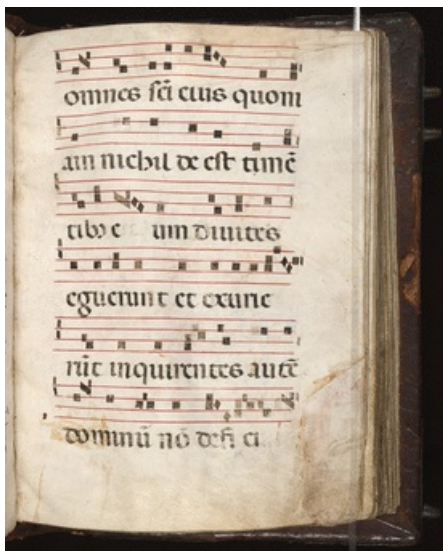 omnes scī eius quoni
am nichil de est timē
tibꝫ e um diuites
eguerunt et exurie
rūt inquirentes autē
dominū nō defi ci